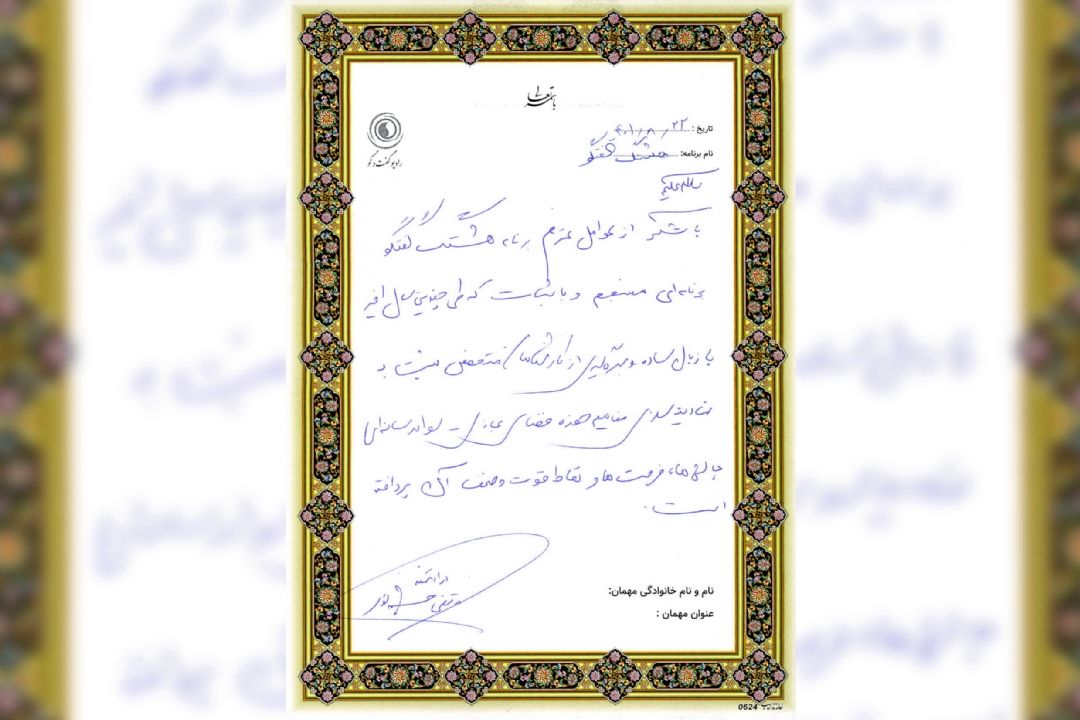 باسمه تعالی
تاریخ: ۱۴۰۱/۸/۲۲
رادیو گفت و گو
نام برنامه: هشتگ گفتگو
سلام علیکم
با تشکر از عوامل محترم برنامه هشتگ گفتگو
برنامه‌ای منسجم و با ثبات که طی چندین سال اخیر
با زبان ساده و بهره‌گیری از کارشناسان متخصص نسبت به
مفاهیم حوزه فضای مجازی سواد رسانه‌ای
چالش‌ها، فرصت‌ها و نقاط قوت و ضعف آن پرداخته
است.
ارادتمند
مرتضی
نام و نام خانوادگی مهمان:
عنوان مهمان :
0624